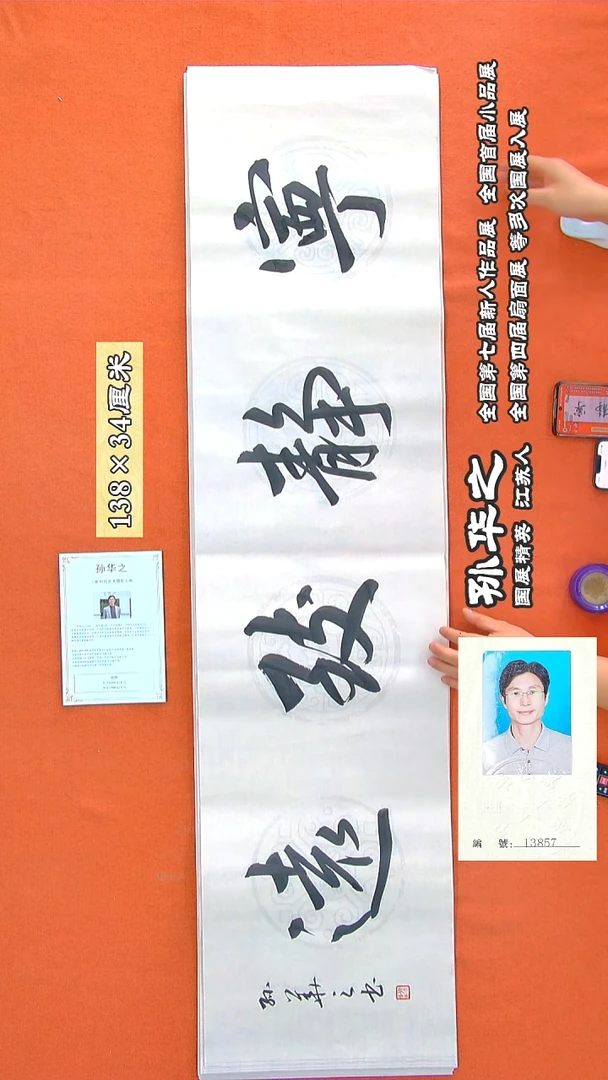 寧静致遠
孙華之书
138×34厘米
孙华之
孙华之
国展精英 江苏人
全国第七届新人作品展 全国首届小品展
全国第四届扇面展 等多次国展入展
編 號: 13857